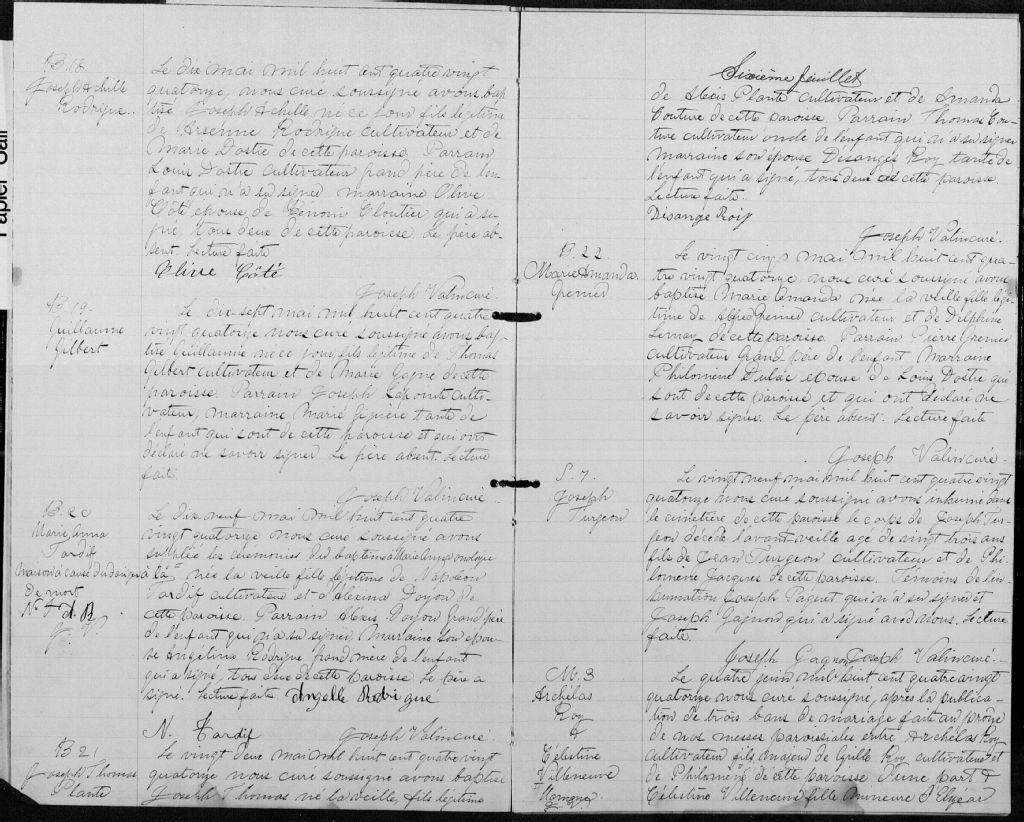 B. 18.
Joseph Achille
Rodrigue.
Le dix mai mil huit cent quatre vingt
quatorze, nous curé soussigné avons bap
tisé Joseph Achille né ce jour fils légitime
de Arsenne Rodrigue cultivateur et de
Marie Dostie de cette paroisse. Parrain
Louis Dostie cultivateur grand père de l'en-
fant qui n'a su signer marraine Olive
Côté épouse de Cloutier qui a si-
gné, tous deux de cette paroisse. Le père ab-
sent. Lecture faite
Olive Côté
Joseph Valin curé.
B. 19.
Guillaume
Gilbert
Le dix-sept mai mil huit cent quatre
vingt quatorze nous curé soussigné avons bap-
tisé Guillaume né ce jour, fils légitime de Thomas
Gilbert cultivateur et de Marie Gagné de cette
paroisse. Parrain Joseph Lapointe culti-
vateur, marraine Marie tante de
l'enfant qui sont de cette paroisse et qui ont
déclaré ne savoir signer. Le père absent. Lecture
faite.
Joseph Valin curé
B. 20
Marie Anna
Tardif
maison à cause du danger
de mort
N. T. A. R.
J. V.
Le dix neuf mai mil huit cent quatre
vingt quatorze nous curé soussigné avons
supplié les cérémonies du baptême à Marie Anna ondoyée
à la née la veille fille légitime de Napoléon
Tardif cultivateur et d'Alexina Doyon de
cette paroisse. Parrain Alexis Doyon grand'père
de l'enfant qui n'a su signer. Marraine son épou-
se Angelina Rodrigue grand mère de l'enfant
qui a signé, tous deux de cette paroisse. Le père a
signé. Lecture faite Angelle Rodrigue
N. Tardif Joseph Valin curé.
B 21
Joseph Thomas
Plante
Le vingt deux mai mil huit cent quatre vingt
quatorze nous curé soussigné avons baptisé
Joseph Thomas né la veille, fils légitime
Sixième feuillet
de Alexis Plante cultivateur et de Amanda
Couture de cette paroisse. Parrain Thomas Cou-
ture cultivateur oncle de l'enfant qui n'a su signer
Marraine son épouse Désanges Roy tante de
l'enfant qui a signé, tous deux de cette paroisse.
Lecture faite.
Disange Roiy
Joseph Valin curé.
B. 22
Marie Amanda
Grenier
Le vingt cinq mai mil huit cent qua-
tre vingt quatorze nous curé soussigné avons
baptisé Marie Amanda née la veille fille légi-
time de Alfred Grenier cultivateur et de Delphine
Lemay de cette paroisse. Parrain Pierre Grenier
cultivateur grand père de l'enfant. Marraine
Philomène Dulac épouse de Louis Dostie qui
sont de cette paroisse et qui ont déclaré ne
savoir signer. Le père absent. Lecture faite
Joseph Valin curé.
S. 7.
Joseph
Turgeon
Le vingt neuf mai mil huit cent quatre vingt
quatorze nous curé soussigné avons inhumé dans
le cimetière de cette paroisse le corps de Joseph Tur-
geon décédé l'avant veille âgé de vingt trois ans
fils de Jean Turgeon cultivateur et de Phi-
lomène Jacques de cette paroisse. Témoins de l'in-
humation Joseph Paquet qui n'a su signer et
Joseph Gagnon qui a signé avec nous. Lecture
faite.
Joseph Gagnon Joseph Valin curé.
M. 3
Archélas
Roy
&
Célestine
Villeneuve
Le quatre juin mil huit cent quatre vingt
quatorze nous curé soussigné, après la publica-
tion de trois bans de mariage faite au prône
de nos messes paroissiales entre Archélas Roy
cultivateur fils majeur de Roy cultivateur et
de Philomène de cette paroisse d'une part &
Célestine Villeneuve fille mineure d'Elzéar